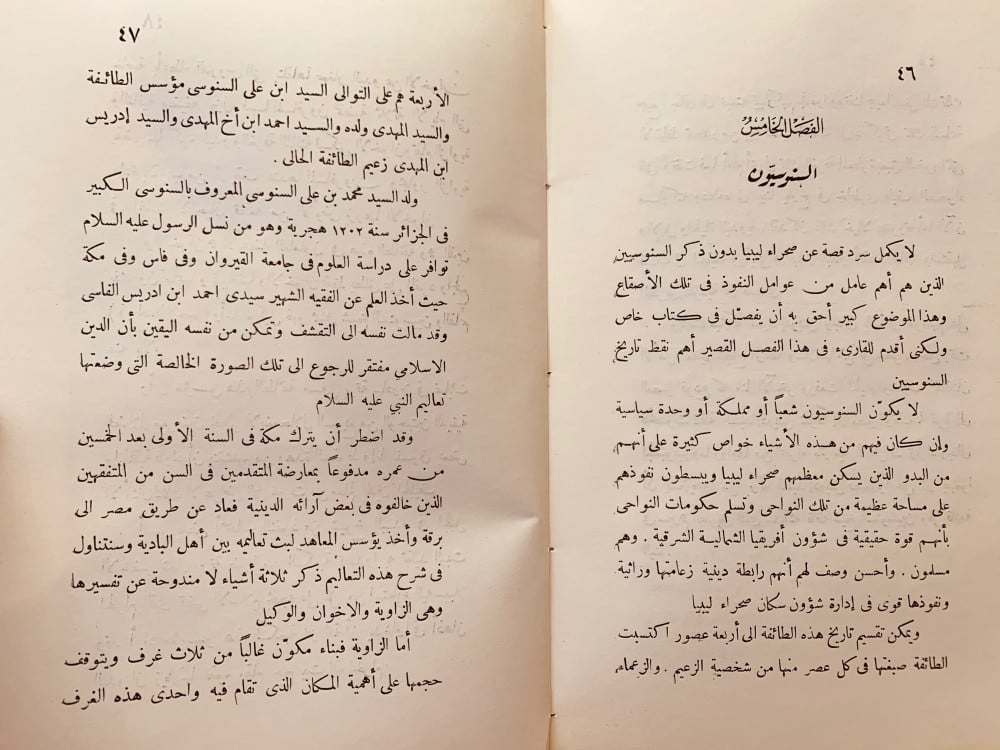 ٤٦
الفصل الخامس
السنوسيون
لا يكمل سرد قصة عن صحراء ليبيا بدون ذكر السنوسيين
الذين هم أهم عامل من عوامل النفوذ فى تلك الأصقاع
وهذا الموضوع كبير أحق به أن يفصّل فى كتاب خاص
ولكنى أقدم للقارىء فى هذا الفصل القصير أهم نقط تاريخ
السنوسيين
لا يكوّن السنوسيون شعباً أو مملكة أو وحدة سياسية
وإن كان فيهم من هذه الأشياء خواص كثيرة على أنهم
من البدو الذين يسكن معظمهم صحراء ليبيا ويبسطون نفوذهم
على مساحة عظيمة من تلك النواحى وتسلم حكومات النواحى
بأنهم قوة حقيقية فى شؤون أفريقيا الشمالية الشرقية . وهم
مسلمون . وأحسن وصف لهم أنهم رابطة دينية زعامتها وراثية
ونفوذها قوى فى إدارة شؤون سكان صحراء ليبيا
ويمكن تقسيم تاريخ هذه الطائفة الى أربعة عصور اكتسبت
الطائفة صبغتها فى كل عصر منها من شخصية الزعيم . والزعماء
٤٧
الأربعة هم على التوالى السيد ابن على السنوسى مؤسس الطائفة
والسيد المهدى ولده والسيد احمد ابن أخ المهدى والسيد إدريس
ابن المهدى زعيم الطائفة الحالى .
ولد السيد محمد بن على السنوسى المعروف بالسنوسى الكبير
فى الجزائر سنة ١٢٠٢ هجرية وهو من نسل الرسول عليه السلام
توافر على دراسة العلوم فى جامعة القيروان وفى فاس وفى مكة
حيث أخذ العلم عن الفقيه الشهير سيدى احمد ابن ادريس الفاسى
وقد مالت نفسه الى التقشف وتمكن من نفسه اليقين بأن الدين
الاسلامي مفتقر للرجوع الى تلك الصورة الخالصة التى وضعتها
تعاليم النبي عليه السلام
وقد اضطر أن يترك مكة فى السنة الأولى بعد الخمسين
من عمره مدفوعاً بمعارضة المتقدمين فى السن من المتفقهين
الذين خالفوه فى بعض آرائه الدينية فعاد عن طريق مصر الى
برقة وأخذ يؤسس المعاهد لبث تعاليمه بين أهل البادية وسنتناول
فى شرح هذه التعاليم ذكر ثلاثة أشياء لا مندوحة عن تفسيرها
وهى الزاوية والاخوان والوكيل
أما الزاوية فبناء مكوّن غالباً من ثلاث غرف ويتوقف
حجمها على أهمية المكان الذى تقام فيه واحدى هذه الغرف